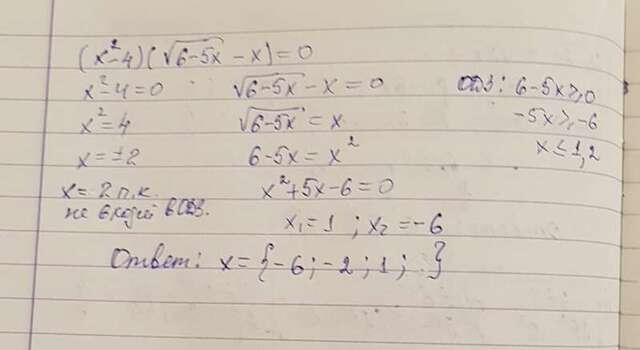 (x²-4)(√6-5x - x)=0
x²-4=0 √6-5x - x=0 ОДЗ: 6-5x≥0
x²=4 √6-5x = x -5x≥-6
x=±2 6-5x=x² x≤1,2
x=2 п.к. x²+5x-6=0
не входит в ОДЗ. x₁=1 ; x₂=-6
Ответ: x={-6;-2;1; }